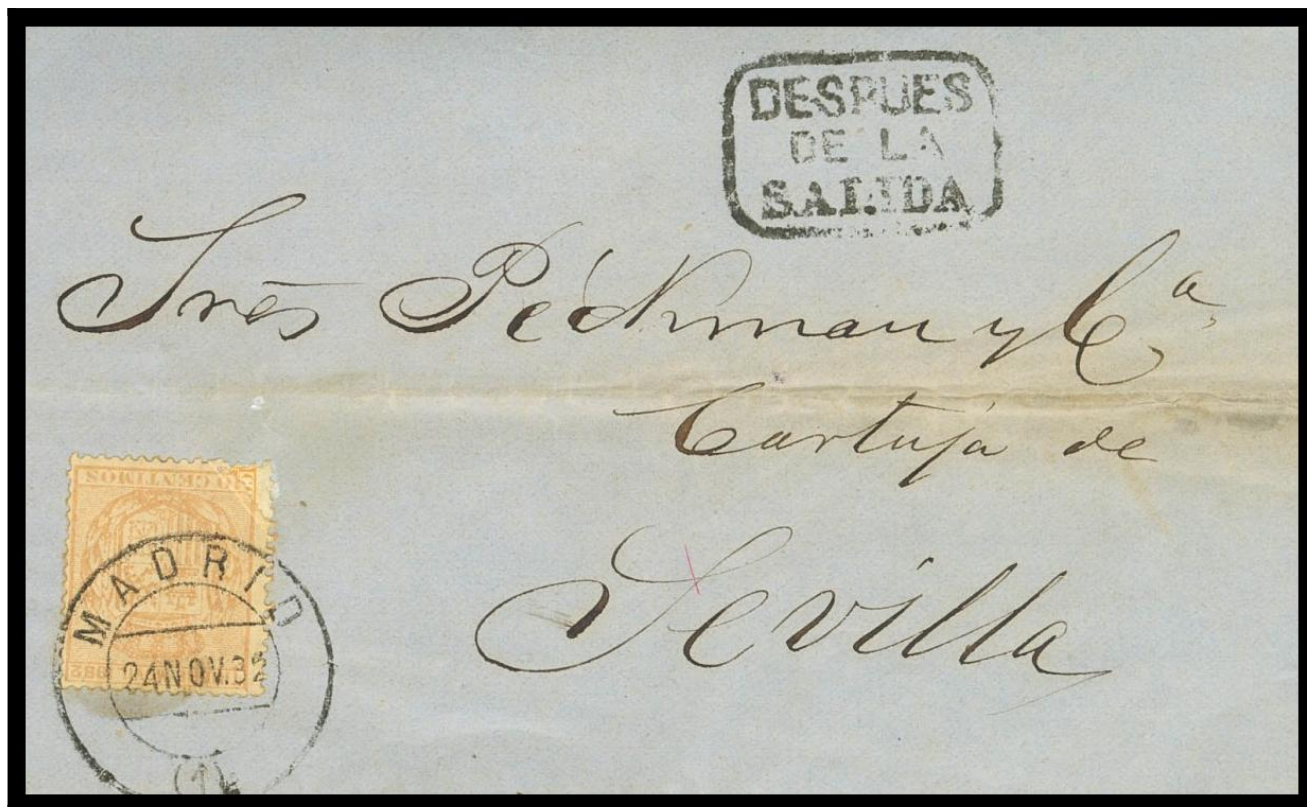 DESPUES
DE LA
SALIDA
Sres Pickman y Cª
Cartuja de
Sevilla
0 CENTIMOS
MADRID
24 NOV. 82
(1)